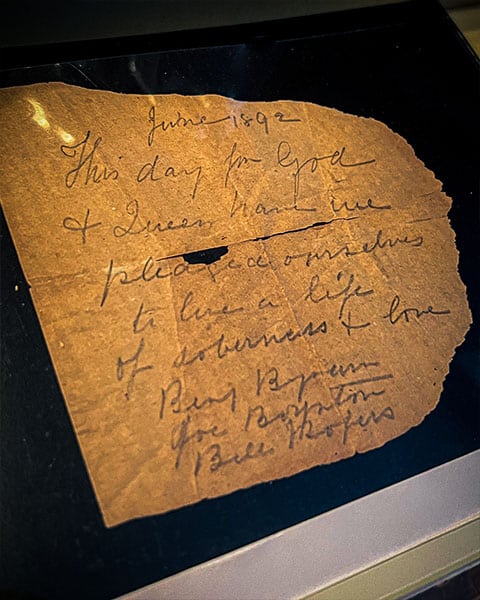 June 1892
This day for God
& Queen have we
pledged ourselves
to live a life
of soberness & love
Benj
Joe Boynton
Bill Rogers